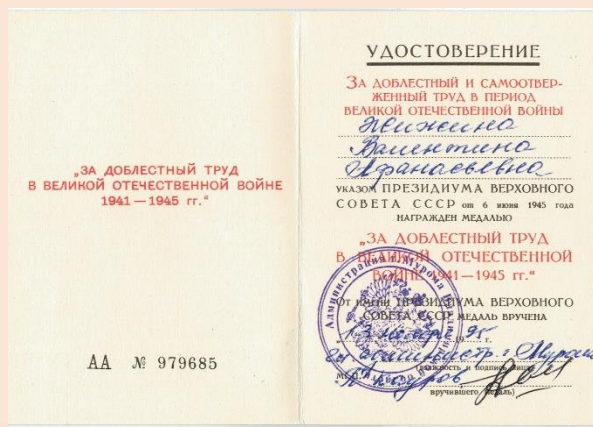 „ЗА ДОБЛЕСТНЫЙ ТРУД
В ВЕЛИКОЙ ОТЕЧЕСТВЕННОЙ ВОЙНЕ
1941 — 1945 гг.“
АА № 979685
УДОСТОВЕРЕНИЕ
ЗА ДОБЛЕСТНЫЙ И САМООТВЕР-
ЖЕННЫЙ ТРУД В ПЕРИОД
ВЕЛИКОЙ ОТЕЧЕСТВЕННОЙ ВОЙНЫ
Валентина
Афанасьевна
УКАЗОМ ПРЕЗИДИУМА ВЕРХОВНОГО
СОВЕТА СССР от 6 июня 1945 года
НАГРАЖДЕН МЕДАЛЬЮ
„ЗА ДОБЛЕСТНЫЙ ТРУД
В ВЕЛИКОЙ ОТЕЧЕСТВЕННОЙ
ВОЙНЕ 1941—1945 гг.“
От имени ПРЕЗИДИУМА ВЕРХОВНОГО
СОВЕТА СССР МЕДАЛЬ ВРУЧЕНА
19 95 г.
г. Мурома
(должность и подпись лица
М.П.
вручившего медаль)
Администрация г. Мурома